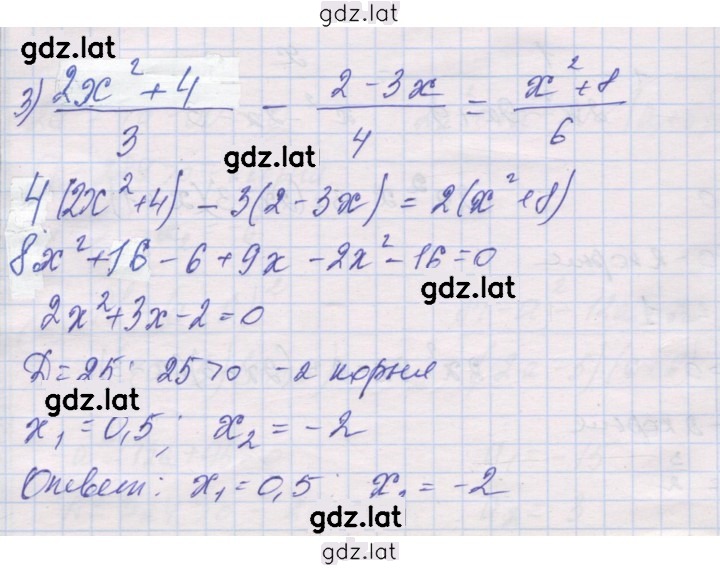 gdz.lat
gdz.lat
3) (2x² + 4)/3 - (2 - 3x)/4 = (x² + 8)/6
gdz.lat
4(2x² + 4) - 3(2 - 3x) = 2(x² + 8)
8x² + 16 - 6 + 9x - 2x² - 16 = 0
gdz.lat
2x² + 3x - 2 = 0
D = 25; 25 > 0 - 2 корня
gdz.lat
x₁ = 0,5; x₂ = -2
Ответ: x₁ = 0,5; x₂ = -2
gdz.lat
gdz.lat